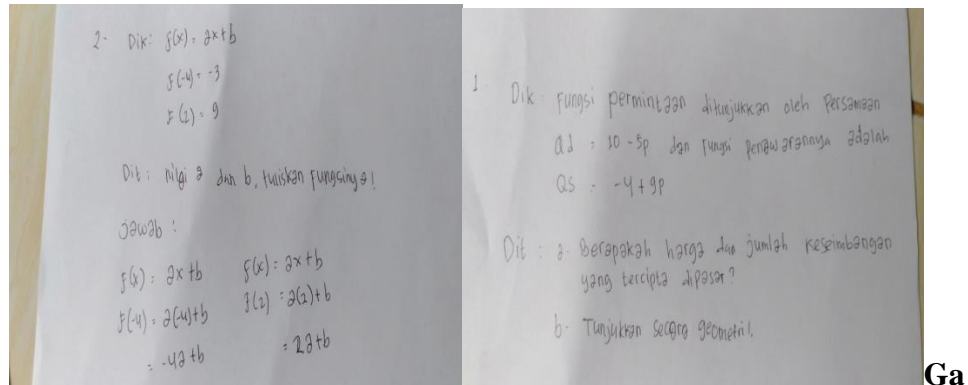 2- Dik: f(x) = ax+b
f(-4) = -3
f(2) = 9
Dit: nilai a dan b, tuliskan fungsinya!
jawab:
f(x) = ax+b
f(-4) = a(-4)+b
= -4a+b
f(x) = ax+b
f(2) = a(2)+b
= 2a+b
1 Dik: Fungsi permintaan ditunjukkan oleh Persamaan
Qd = 10 - 5p dan fungsi penawarannya adalah
QS = -4+9p
Dit: a- Berapakah harga dan jumlah keseimbangan
yang tercipta dipasar?
b- Tunjukkan secara geometri!
Ga